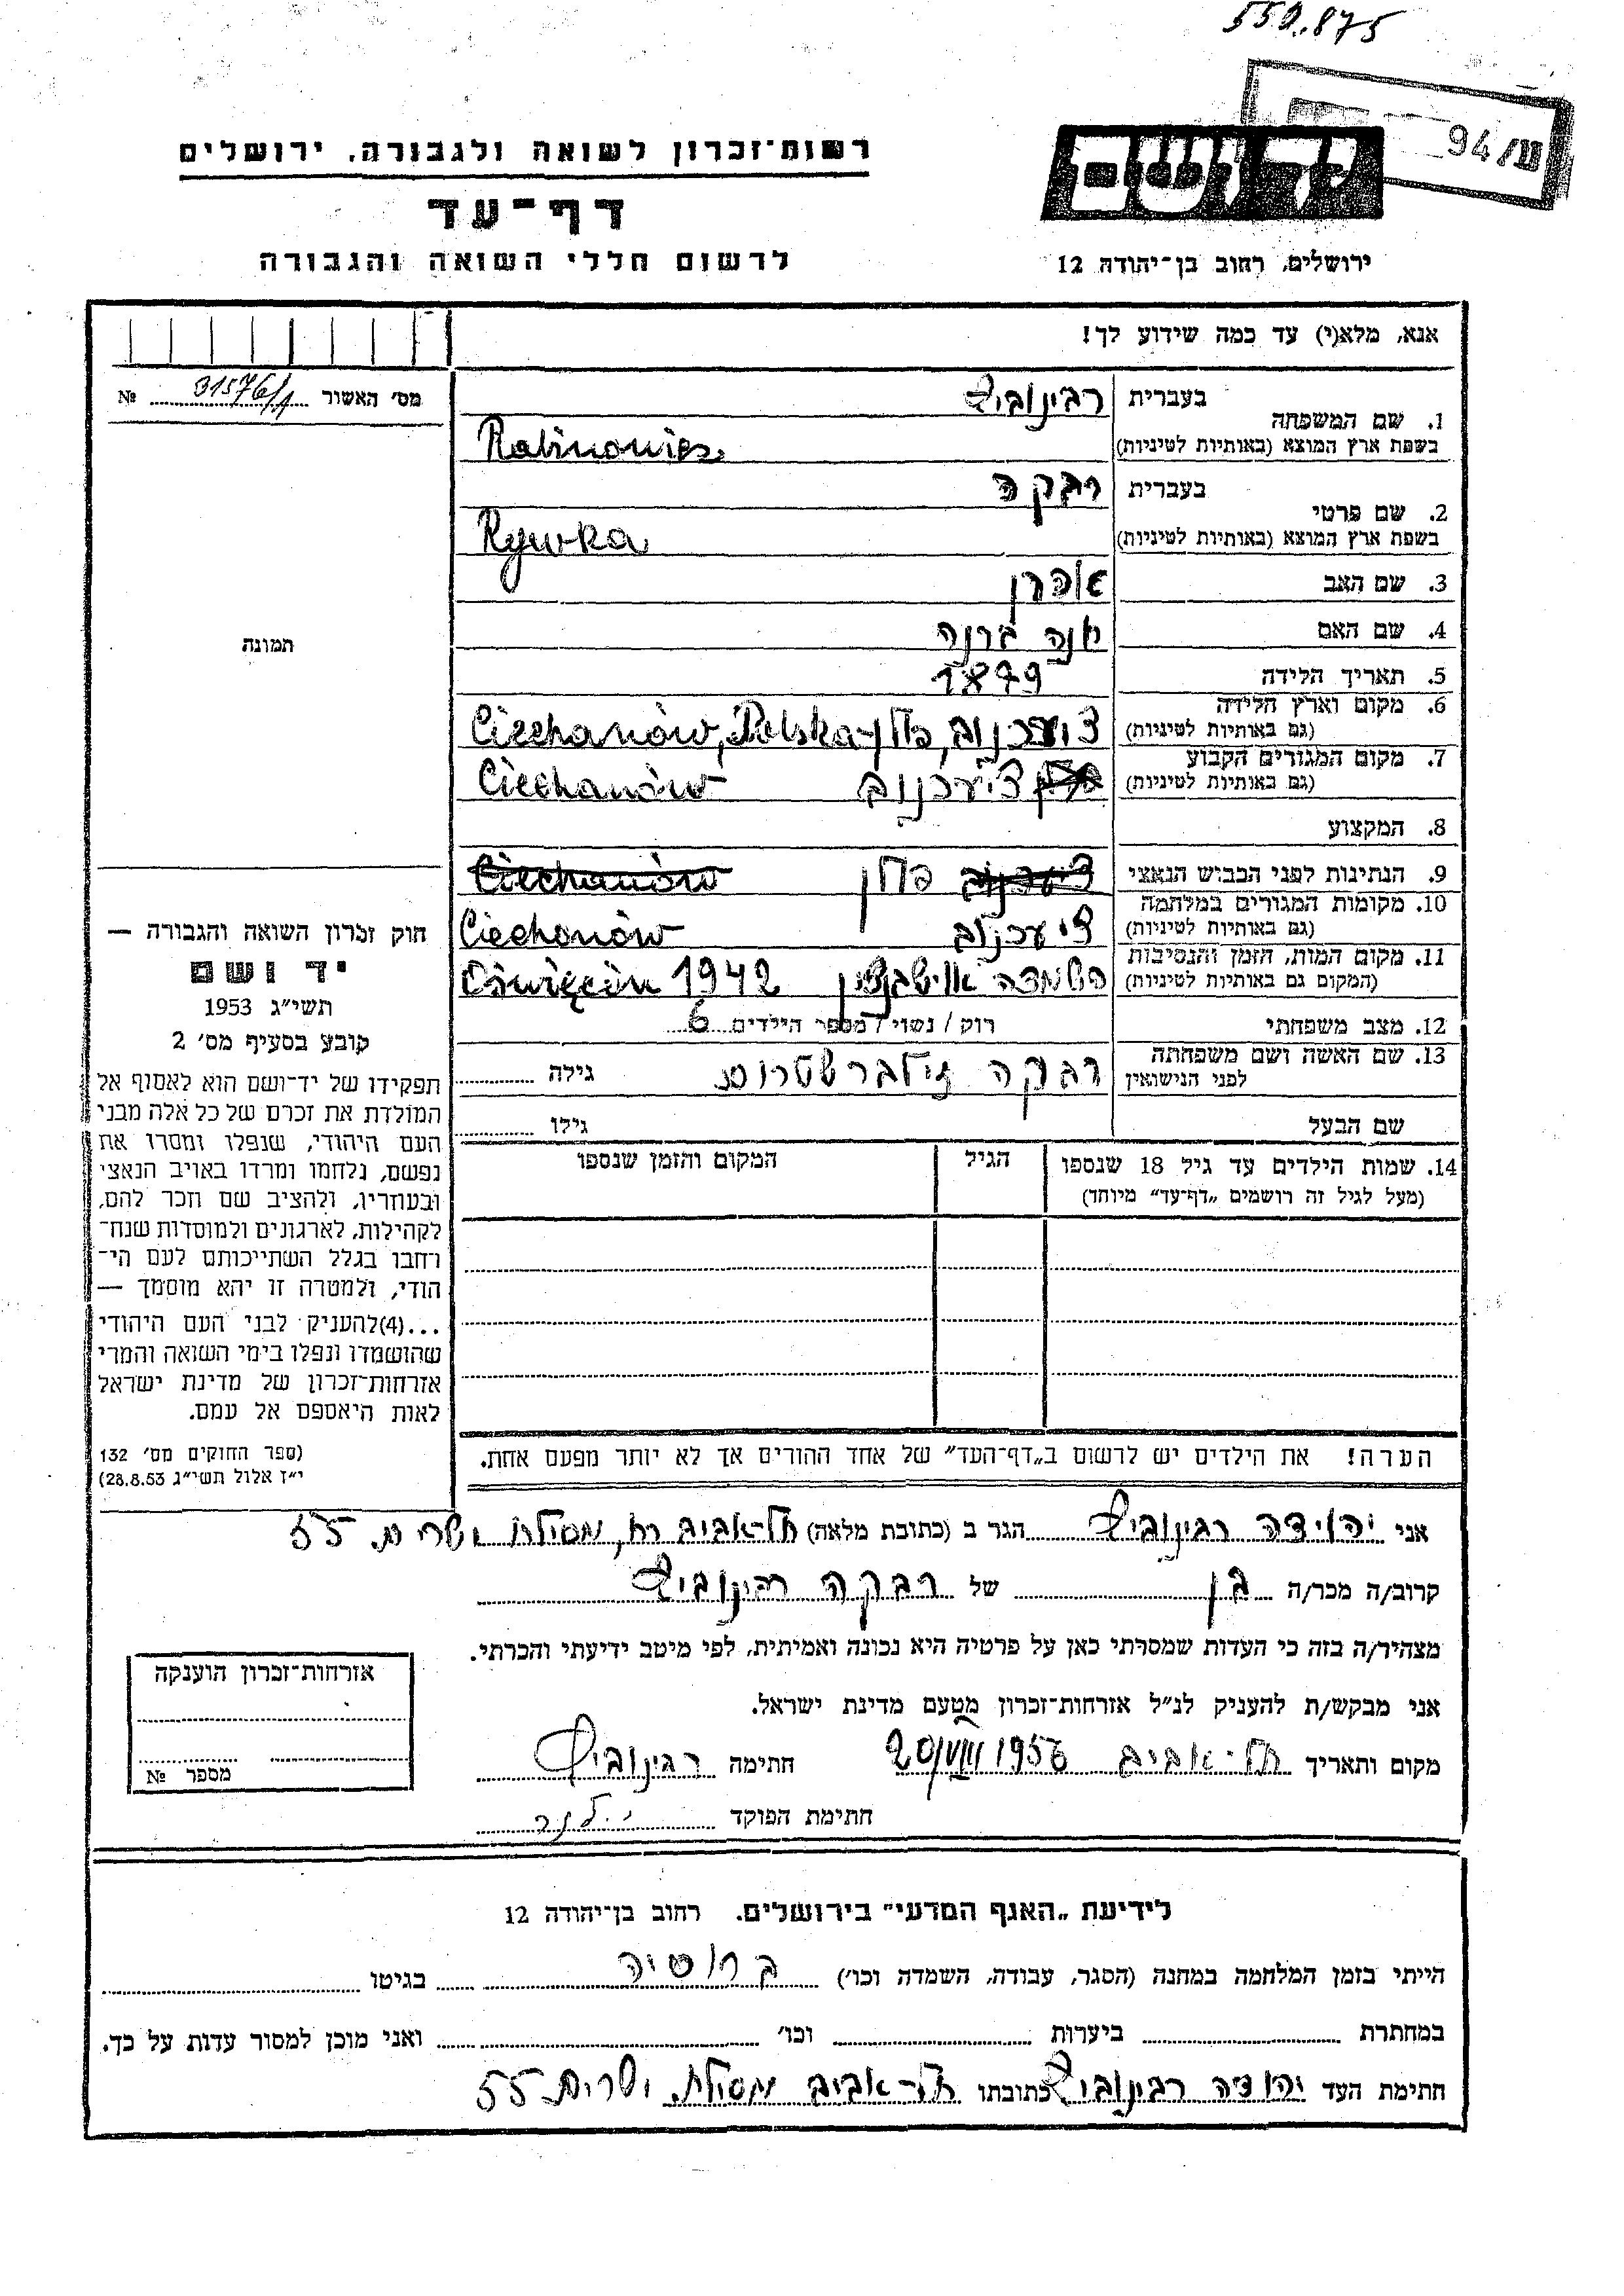 550.875
ע/94
יד ושם
רשות־זכרון לשואה ולגבורה, ירושלים
דף־עד
לרשום חללי השואה והגבורה
ירושלים, רחוב בן־יהודה 12
אנא, מלא(י) עד כמה שידוע לך!
מס׳ האשור 31576/1 №
1. שם המשפחה
בעברית רבינוביץ
בשפת ארץ המוצא (באותיות לטיניות) Rabinowicz
2. שם פרטי
בעברית רבקה
בשפת ארץ המוצא (באותיות לטיניות) Rywka
3. שם האב אהרן
4. שם האם
5. תאריך הלידה 1879
6. מקום וארץ הלידה
(גם באותיות לטיניות) ציעכנוב, פולין Ciechanów, Polska
7. מקום המגורים הקבוע
(גם באותיות לטיניות) ציעכנוב Ciechanów
8. המקצוע
9. הנתינות לפני הכבוש הנאצי ציעכנוב פולין Ciechanów
10. מקומות המגורים במלחמה
(גם באותיות לטיניות) ציעכנוב Ciechonów
11. מקום המות, הזמן והנסיבות
(המקום גם באותיות לטיניות) השמדה Oświęcim 1942
12. מצב משפחתי רוק / נשוי / מספר הילדים 6
13. שם האשה ושם משפחתה
לפני הנישואין רבקה זילברשטרום גילה
שם הבעל גילו
14. שמות הילדים עד גיל 18 שנספו הגיל המקום והזמן שנספו
(מעל לגיל זה רושמים „דף־עד״ מיוחד)
הערה! את הילדים יש לרשום ב„דף־העד״ של אחד ההורים אך לא יותר מפעם אחת.
תמונה
חוק זכרון השואה והגבורה —
יד ושם
תשי״ג 1953
קובע בסעיף מס׳ 2
תפקידו של יד־ושם הוא לאסוף אל
המולדת את זכרם של כל אלה מבני
העם היהודי, שנפלו ומסרו את
נפשם, נלחמו ומרדו באויב הנאצי
ובעוזריו, ולהציב שם וזכר להם,
לקהילות, לארגונים ולמוסדות שנח־
רחבו בגלל השתייכותם לעם הי־
הודי, ולמטרה זו יהא מוסמך —
...(4)להעניק לבני העם היהודי
שהושמדו ונפלו בימי השואה והמרי
אזרחות־זכרון של מדינת ישראל
לאות היאספם אל עמם.
(ספר החוקים מס׳ 132
י״ז אלול תשי״ג 28.8.53)
אני יהוידה רבינוביץ הגר ב (כתובת מלאה) תל־אביב רח, מסילת ישרים 55
קרוב/ה מכר/ה בן של רבקה רבינוביץ
מצהיר/ה בזה כי העדות שמסרתי כאן על פרטיה היא נכונה ואמיתית, לפי מיטב ידיעתי והכרתי.
אני מבקש/ת להעניק לנ״ל אזרחות־זכרון מטעם מדינת ישראל.
מקום ותאריך תל־אביב 20/VIII 1956 חתימה רבינוביץ
חתימת הפוקד
אזרחות־זכרון הוענקה
מספר №
לידיעת „האגף המדעי״ בירושלים. רחוב בן־יהודה 12
הייתי בזמן המלחמה במחנה (הסגר, עבודה, השמדה וכו׳) ברוסיה בגיטו
במחתרת ביערות וכו׳ ואני מוכן למסור עדות על כך.
חתימת העד יהודה רבינוביץ כתובתו תל־אביב מסילת ישרים 55